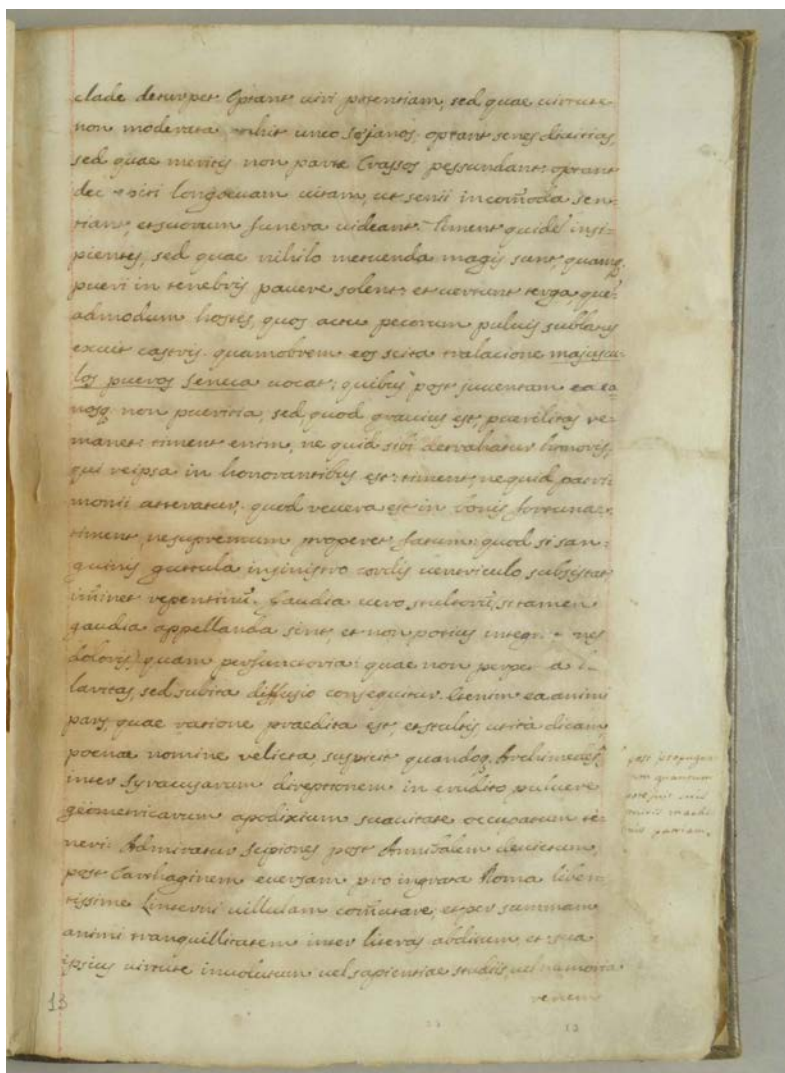 clade deturpet. Optant viri potentiam, sed quae virtute
non moderata, unco Sejanos; optant senes divitias,
sed quae meritis non partae Crassos pessundant: optant
longaevam vitam, ut senii incom̄oda sen-
tiant, et suorum funera videant. Timent quidē insi-
pientes, sed quae nihilo metuenda magis sunt, quam q.
pueri in tenebris pavere solent: et vertunt terga, quē-
admodum hostes, quos actu pecorum pulvis sublatus
exuit castris. quamobrem eos scita tralacione majuscu-
los pueros Seneca vocat; quibus post juventam ea ca-
nosq. non puericia, sed, quod gravius est, puerilitas re-
manet: timent enim, ne quid sibi detrahatur honoris,
qui reipsa in honorantibus est: timent, ne quid patri-
monii atteratur. quod revera est in bonis fortunae:
timent, ne supremum properet fatum: quod si san-
guinis guttula in sinistro cordis ventriculo subsistat
im̄inet repentinū. Gaudia vero stultorū, si tamen
gaudia appellanda sint, et non potius
doloris, quam perfunctoria: quae non
laritas, sed subita diffusio consequitur. Etenim ea animi
pars, quae ratione praedita est, et stultis, ut ita dicam,
poenae nomine relicta, suspicit quandoq. Archimedē,
inter Syracusarum direptionem in erudito pulvere
geometricarum apodixium suavitate occupatum te-
neri. Admiratur Scipiones post Annibalem devictum,
post Carthaginem eversam pro ingrata Roma liben-
tissime Linterni villulam com̄utare, et per summam
animi tranquillitatem inter literas abditum, et sua
ipsius virtute involutum vel sapientiae studiis, vel memoria
post
quantum
miris machi-
nis patriam.
13